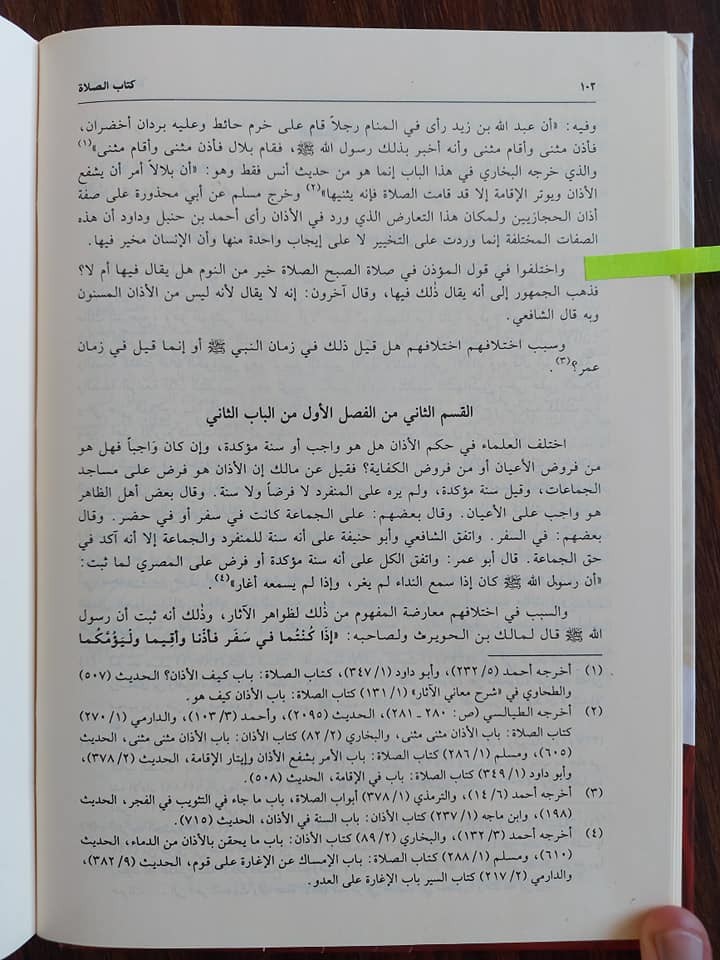 ١٠٢
كتاب الصلاة
وفيه: «أن عبد الله بن زيد رأى في المنام رجلاً قام على خرم حائط وعليه بردان أخضران،
فأذن مثنى وأقام مثنى وأنه أخبر بذلك رسول الله ﷺ، فقام بلال فأذن مثنى وأقام مثنى»(١)
والذي خرجه البخاري في هذا الباب إنما هو من حديث أنس فقط وهو: «أن بلالاً أمر أن يشفع
الأذان ويوتر الإقامة إلا قد قامت الصلاة فإنه يثنيها»(٢) وخرج مسلم عن أبي محذورة على صفة
أذان الحجازيين ولمكان هذا التعارض الذي ورد في الأذان رأى أحمد بن حنبل وداود أن هذه
الصفات المختلفة إنما وردت على التخيير لا على إيجاب واحدة منها وأن الإنسان مخير فيها.
واختلفوا في قول المؤذن في صلاة الصبح الصلاة خير من النوم هل يقال فيها أم لا؟
فذهب الجمهور إلى أنه يقال ذٰلك فيها، وقال آخرون: إنه لا يقال لأنه ليس من الأذان المسنون
وبه قال الشافعي.
وسبب اختلافهم اختلافهم هل قيل ذلك في زمان النبي ﷺ أو إنما قيل في زمان
عمر؟(٣).
القسم الثاني من الفصل الأول من الباب الثاني
اختلف العلماء في حكم الأذان هل هو واجب أو سنة مؤكدة، وإن كان وَاجباً فهل هو
من فروض الأعيان أو من فروض الكفاية؟ فقيل عن مالك إن الأذان هو فرض على مساجد
الجماعات، وقيل سنة مؤكدة، ولم يره على المنفرد لا فرضاً ولا سنة. وقال بعض أهل الظاهر
هو واجب على الأعيان. وقال بعضهم: على الجماعة كانت في سفر أو في حضر. وقال
بعضهم: في السفر. واتفق الشافعي وأبو حنيفة على أنه سنة للمنفرد والجماعة إلا أنه آكد في
حق الجماعة. قال أبو عمر: واتفق الكل على أنه سنة مؤكدة أو فرض على المصري لما ثبت:
«أن رسول الله ﷺ كان إذا سمع النداء لم يغر، وإذا لم يسمعه أغار»(٤).
والسبب في اختلافهم معارضة المفهوم من ذٰلك لظواهر الآثار، وذٰلك أنه ثبت أن رسول
الله ﷺ قال لمالك بن الحويرث ولصاحبه: «إذَا كُنْتُما في سَفَر فأذّنا وأقِيما ولْيَؤُمَّكُما
(١) أخرجه أحمد (٢٣٢/٥)، وأبو داود (٣٤٧/١)، كتاب الصلاة: باب كيف الأذان؟ الحديث (٥٠٧)
والطحاوي في «شرح معاني الآثار» (١٣١/١) كتاب الصلاة: باب الأذان كيف هو.
(٢) أخرجه الطيالسي (ص: ٢٨٠ ـ ٢٨١)، الحديث (٢٠٩٥)، وأحمد (١٠٣/٣)، والدارمي (٢٧٠/١)
كتاب الصلاة: باب الأذان مثنى مثنى، والبخاري (٨٢/٢) كتاب الأذان: باب الأذان مثنى مثنى، الحديث
(٦٠٥)، ومسلم (٢٨٦/١) كتاب الصلاة: باب الأمر بشفع الأذان وإيتار الإقامة، الحديث (٣٧٨/٢)،
وأبو داود (٣٤٩/١) كتاب الصلاة: باب في الإقامة، الحديث (٥٠٨).
(٣) أخرجه أحمد (١٤/٦)، والترمذي (٣٧٨/١) أبواب الصلاة، باب ما جاء في التثويب في الفجر، الحديث
(١٩٨)، وابن ماجه (٢٣٧/١) كتاب الأذان: باب السنة في الأذان، الحديث (٧١٥).
(٤) أخرجه أحمد (١٣٢/٣)، والبخاري (٨٩/٢) كتاب الأذان: باب ما يحقن بالأذان من الدماء، الحديث
(٦١٠)، ومسلم (٢٨٨/١) كتاب الصلاة: باب الإمساك عن الإغارة على قوم، الحديث (٣٨٢/٩)،
والدارمي (٢١٧/٢) كتاب السير باب الإغارة على العدو.